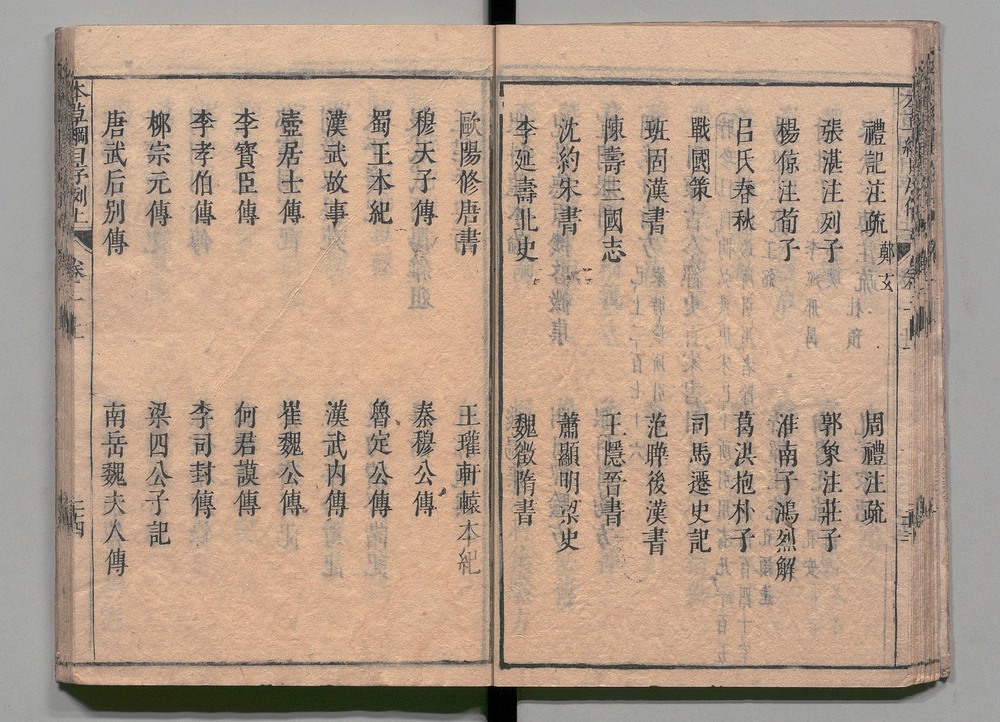 禮記注疏 鄭玄
周禮注疏
張湛注列子
郭象注莊子
楊倞注荀子
淮南子鴻烈解
呂氏春秋
葛洪抱朴子
戰國策
司馬遷史記
班固漢書
范瞱後漢書
陳壽三國志
王隱晉書
沈約宋書
蕭顯明梁史
李延壽北史
魏徵隋書
歐陽修唐書
王瓘軒轅本紀
穆天子傳
秦穆公傳
蜀王本紀
魯定公傳
漢武故事
漢武內傳
壺居士傳
崔魏公傳
李寶臣傳
何君謨傳
李孝伯傳
李司封傳
柳宗元傳
梁四公子記
唐武后別傳
南岳魏夫人傳
本草綱目序例上 卷一上